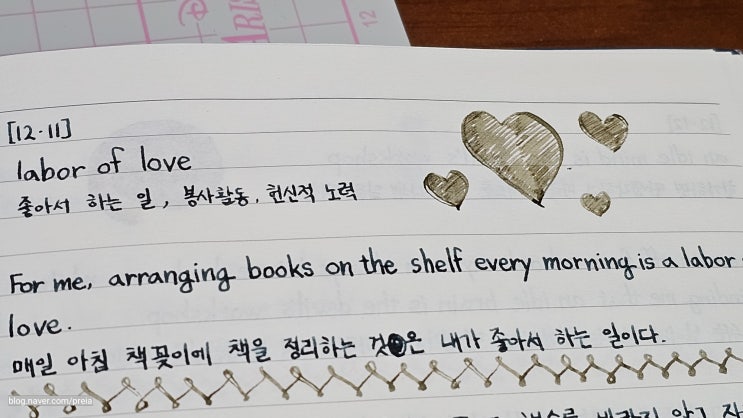 12
[12·11]
labor of love
좋아서 하는 일, 봉사활동, 헌신적 노력
For me, arranging books on the shelf every morning is a labor
love.
매일 아침 책꽂이에 책을 정리하는 것은 내가 좋아서 하는 일이다.
blog.naver.com/preia